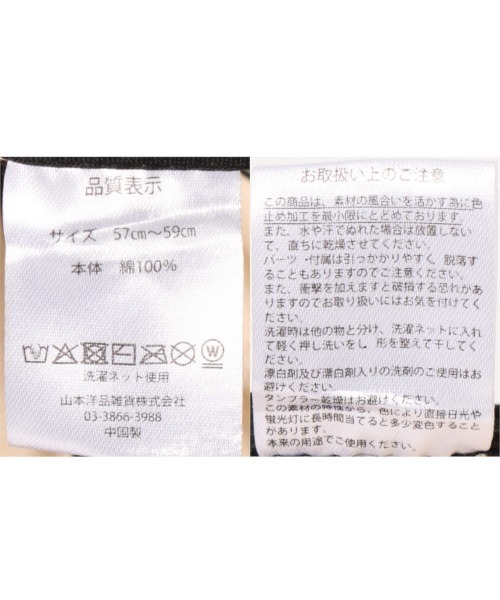 品質表示
サイズ 57cm～59cm
本体 綿100%
W
洗濯ネット使用
山本洋品雑貨株式会社
03-3866-3988
中国製
お取扱い上のご注意
この商品は、素材の風合いを活かす為に色
止め加工を最小限にとどめております。
また、水や汗でぬれた場合は放置しない
で、直ちに乾燥させてください。
パーツ・付属は引っかかりやすく、脱落す
ることもありますのでご注意ください。
また、衝撃を加えますと破損する恐れがあ
りますのでお取り扱いにはお気を付けてく
ださい。
洗濯時は他の物と分け、洗濯ネットに入れ
て軽く押し洗いをし 形を整えて干してく
ださい。
漂白剤及び漂白剤入りの洗剤のご使用はお
避けください。
タンブラー乾燥はお避けください。
この素材の特性から、色により直接日光や
蛍光灯に長時間当てると多少変色すること
があります。
本来の用途でご使用ください。